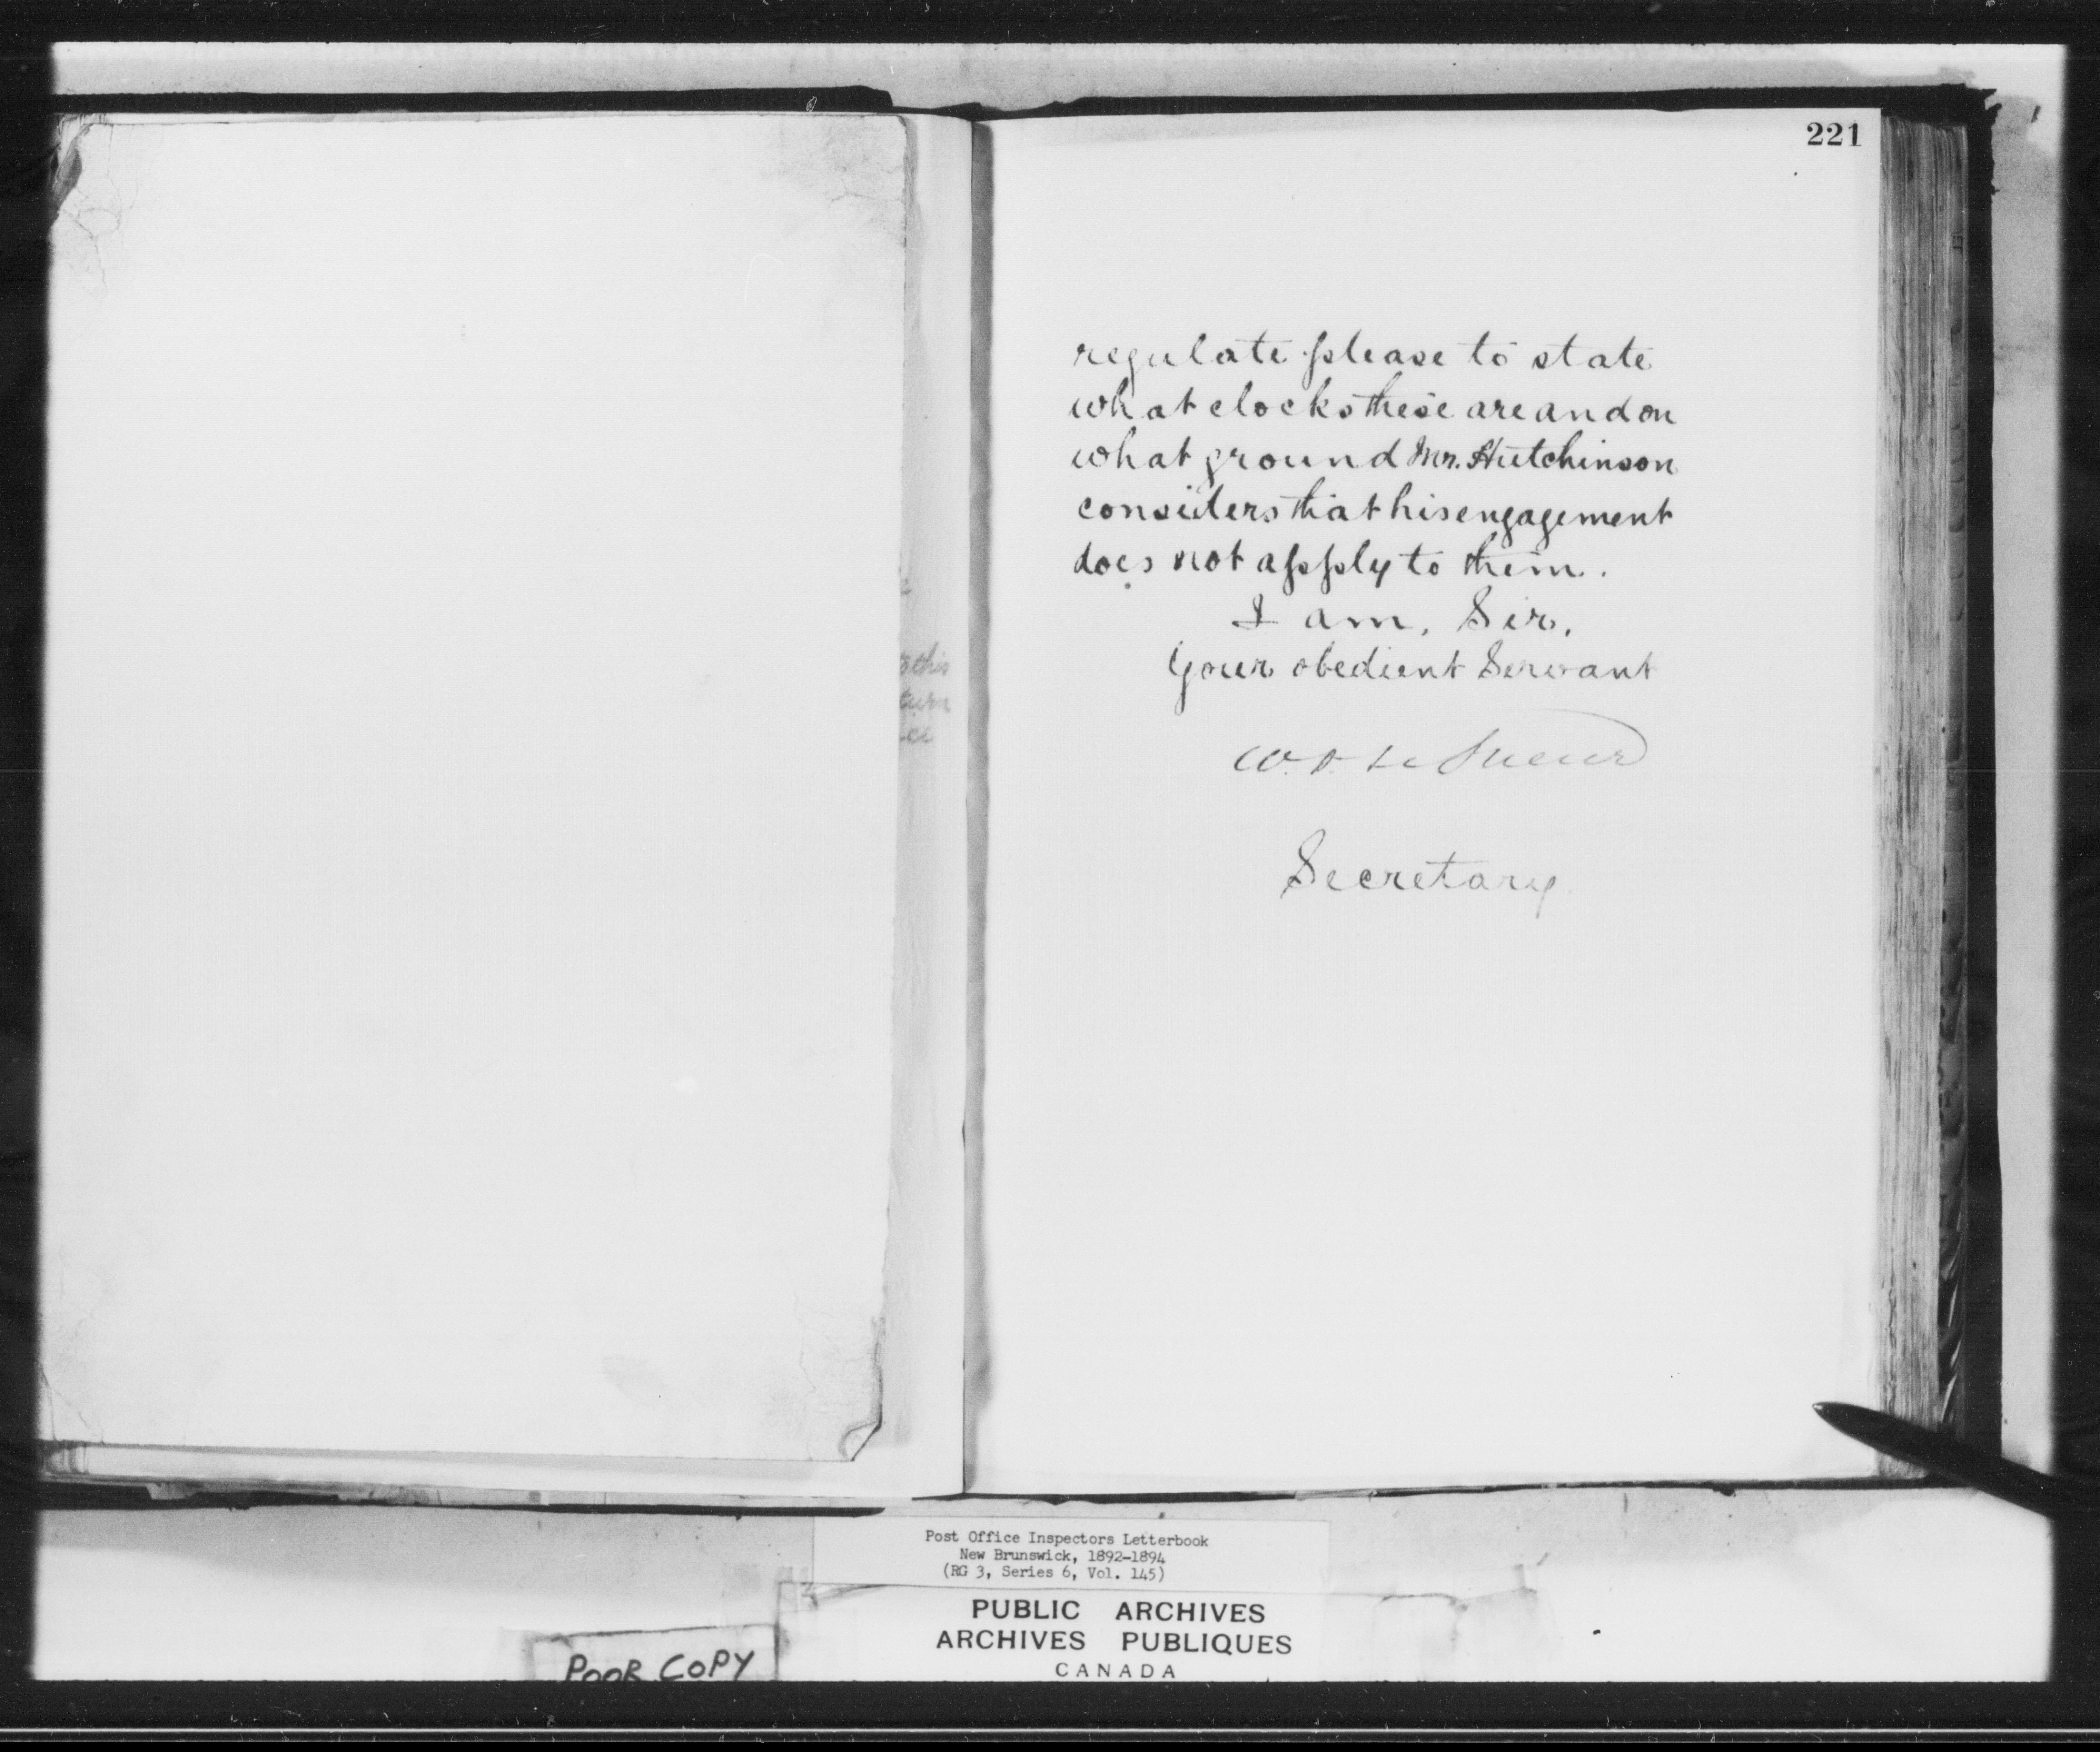 221
regulate please to state
what clocks these are and on
what ground Mr. Hutchinson
considers that his engagement
does not apply to them.
I am, Sir,
Your obedient Servant
W. D. Le Sueur
Secretary
to this
turn
ce
Post Office Inspectors Letterbook
New Brunswick, 1892-1894
(RG 3, Series 6, Vol. 145)
PUBLIC ARCHIVES
ARCHIVES PUBLIQUES
CANADA
POOR COPY